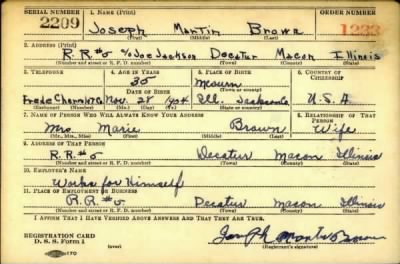 SERIAL NUMBER 1. NAME (Print) ORDER NUMBER
2209 Joseph Martin Brown
(First) (Middle) (Last)
2. ADDRESS (Print)
R.R.#5 c/o Joe Jackson Decatur Macon Illinois
(Number and street or R. F. D. number) (Town) (County) (State)
3. TELEPHONE 4. AGE IN YEARS 5. PLACE OF BIRTH 6. COUNTRY OF CITIZENSHIP
35
Nov. 28 1904 Ill. U.S.A
7. NAME OF PERSON WHO WILL ALWAYS KNOW YOUR ADDRESS 8. RELATIONSHIP OF THAT PERSON
Mrs Marie Brown Wife
(Mr., Mrs., Miss) (First) (Middle) (Last)
9. ADDRESS OF THAT PERSON
R.R.#5 Decatur Macon Illinois
(Number and street or R. F. D. number) (Town) (County) (State)
10. EMPLOYER'S NAME
Works for Himself
11. PLACE OF EMPLOYMENT OR BUSINESS
R.R.#5 Decatur Macon Illinois
(Number and street or R. F. D. number) (Town) (County) (State)
I AFFIRM THAT I HAVE VERIFIED ABOVE ANSWERS AND THAT THEY ARE TRUE.
REGISTRATION CARD
D. S. S. Form 1 (over) Joseph Martin Brown
(Registrant's signature)